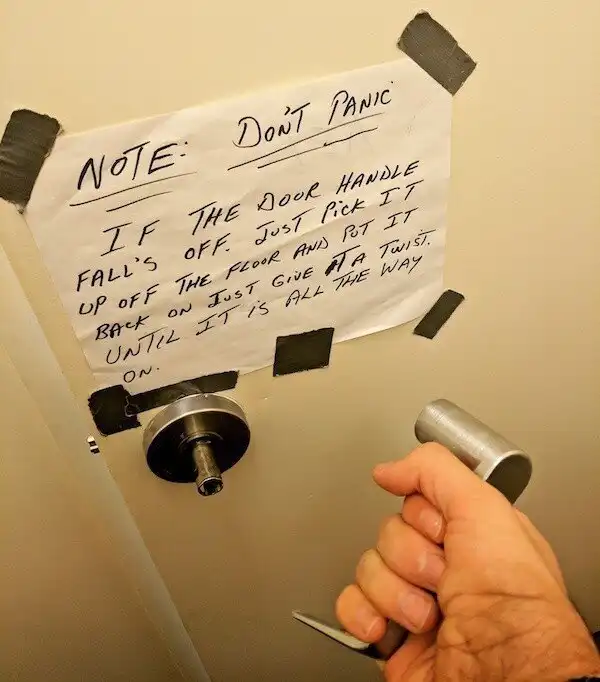 NOTE: DON'T PANIC
IF THE DOOR HANDLE
FALL'S OFF. JUST PICK IT
UP OFF THE FLOOR AND PUT IT
BACK ON JUST GIVE IT A TWIST.
UNTIL IT IS ALL THE WAY
ON.